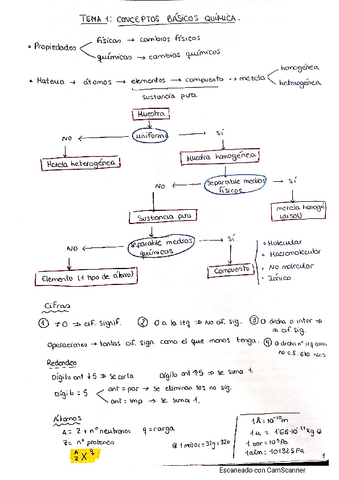 TEMA 1: CONCEPTOS BÁSICOS QUÍMICA.
• Propiedades
físicas → cambios físicos
químicas → cambios químicos
• Materia → átomos → elementos → compuesto → mezcla
homogénea
hetereogénea
sustancia pura
Muestra
NO
uniforme
SÍ
Mezcla heterogénea
Muestra homogénea
NO
separable medios físicos
SÍ
Sustancia pura
mezcla homogé
(disol)
NO
separable medios químicos
SÍ
Elemento (1 tipo de átomo)
Compuesto
• Molecular
• Macromolecular
• No molecular
• Iónico
Cifras
① ≠ 0 ⇒ cif. signif.
② 0 a la izq ⇒ No cif. sig.
③ 0 dcha o inter ⇒ cif. sig.
Operaciones → tantas cif. sign como el que menos tenga.
④ 0 dcha nº
Redondeo
Dígito ant ↓ 5 ⇒ se corta
Dígito ant ↑ 5 ⇒ se suma 1.
Dígito = 5
ant = par → se eliminan los no sig.
ant = imp → se suma 1.
Átomos
A = Z + nº neutrones
q = carga
Z = nº protones
A Z X q
1 Å = 10⁻¹⁰ m
1 u = 1'66·10⁻²⁷ kg
1 bar = 10⁵ Pa
1 atm = 101325 Pa
1
Escaneado con CamScanner